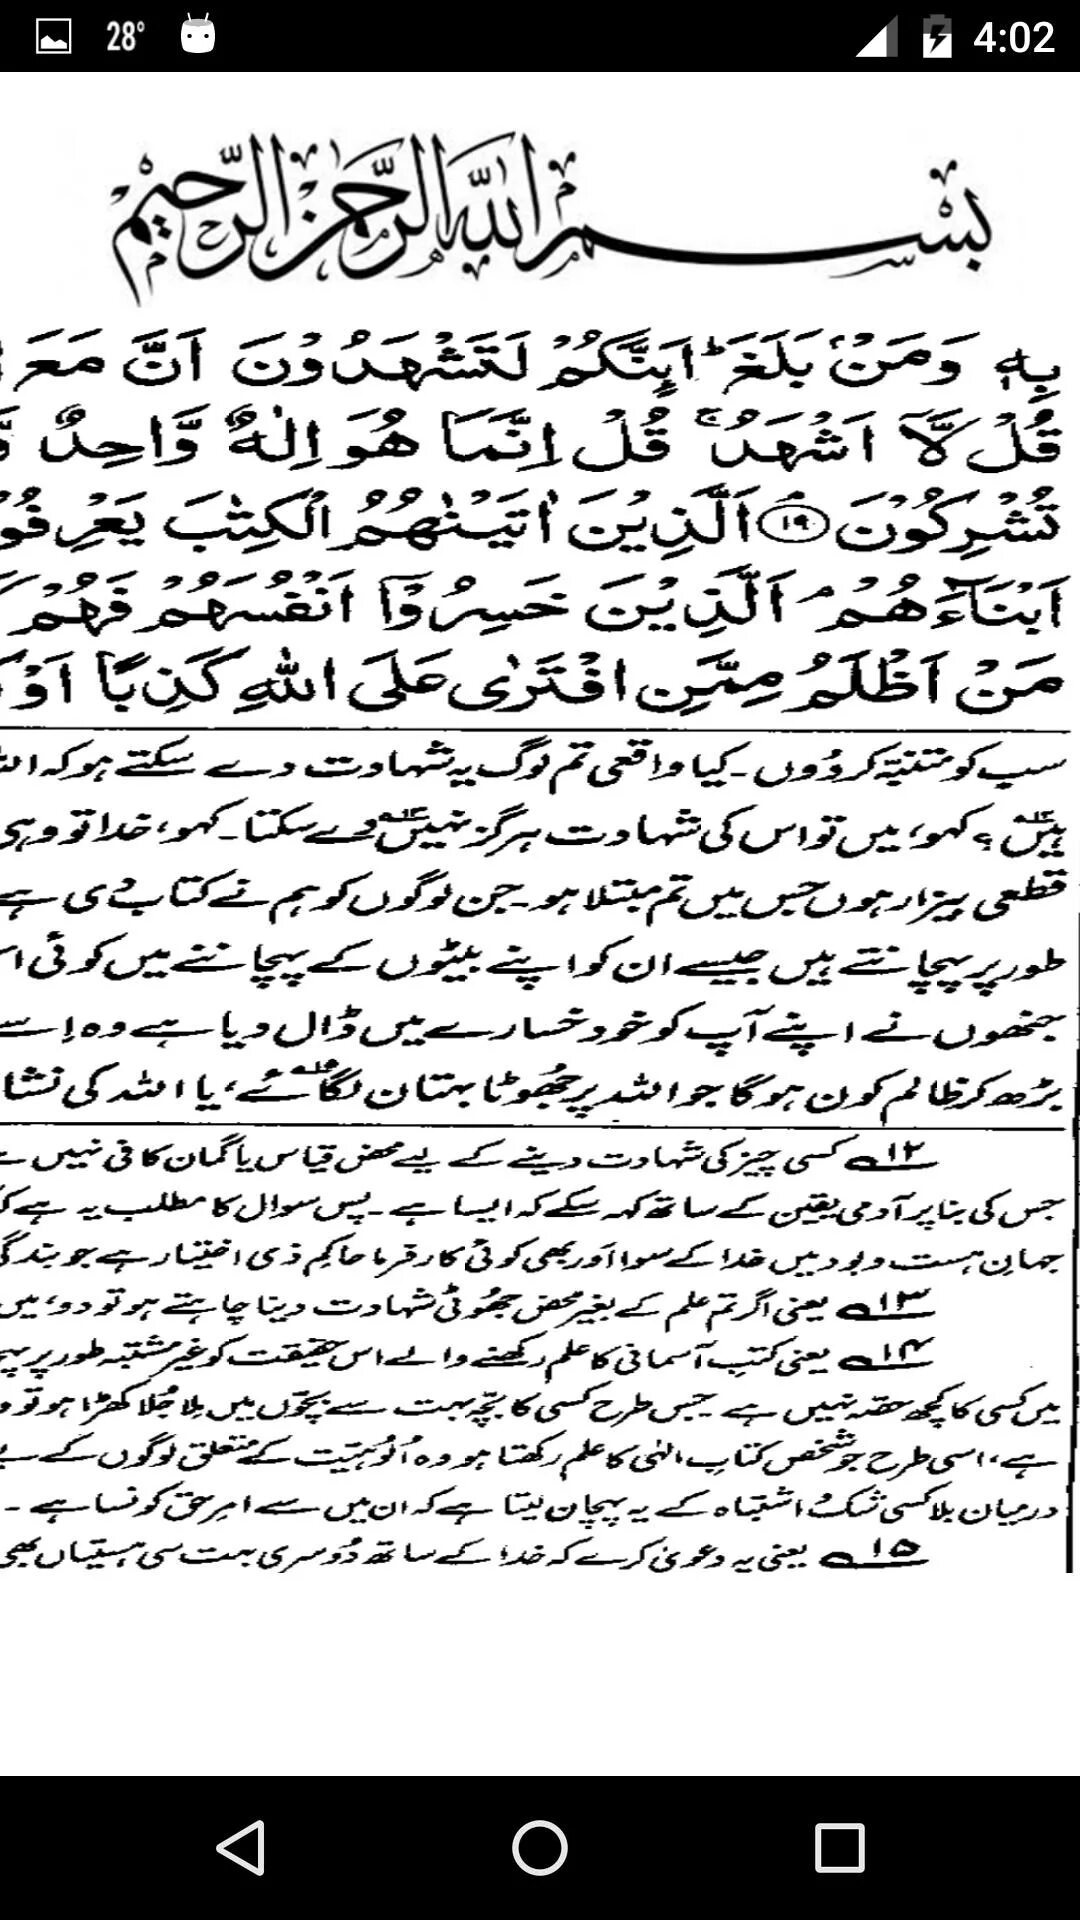 28°
4:02
بسم الله الرحمن الرحيم
بِهٖ وَمَنْۢ بَلَغَ ؕ اَئِنَّكُمْ لَتَشْهَدُوْنَ اَنَّ مَعَ
قُلْ لَّاۤ اَشْهَدُ ۚ قُلْ اِنَّمَا هُوَ اِلٰهٌ وَّاحِدٌ وَّ
تُشْرِكُوْنَ ۘ ﴿۱۹﴾ اَلَّذِيْنَ اٰتَيْنٰهُمُ الْكِتٰبَ يَعْرِفُوْ
اَبْنَآءَهُمْ ۘ اَلَّذِيْنَ خَسِرُوْۤا اَنْفُسَهُمْ فَهُمْ
مَنْ اَظْلَمُ مِمَّنِ افْتَرٰى عَلَى اللّٰهِ كَذِبًا اَوْ
سب کو متنبّہ کردُوں۔ کیا واقعی تم لوگ یہ شہادت دے سکتے ہو کہ
ہیں۱۲؟ کہو، میں تو اس کی شہادت ہرگز نہیں۱۳ دے سکتا۔ کہو، خدا تو وہی
قطعی بیزار ہوں جس میں تم مبتلا ہو۔ جن لوگوں کو ہم نے کتاب دی ہے
طور پر پہچانتے ہیں جیسے ان کو اپنے بیٹوں کے پہچاننے میں کوئی
جنھوں نے اپنے آپ کو خود خسارے میں ڈال دیا ہے وہ اِسے
بڑھ کر ظالم کون ہوگا جو اللہ پر جھُوٹا بہتان لگائے۱۵، یا اللہ کی
۱۲ کسی چیز کی شہادت دینے کے لیے محض قیاس یا گمان کافی نہیں
جس کی بنا پر آدمی یقین کے ساتھ کہہ سکے کہ ایسا ہے۔ پس سوال کا مطلب یہ ہے
جہانِ ہست و بود میں خدا کے سوا اور بھی کوئی کارفرما حاکمِ ذی اختیار ہے جو
۱۳ یعنی اگر تم علم کے بغیر محض جھُوٹی شہادت دینا چاہتے ہو تو دو، میں
۱۴ یعنی کتبِ آسمانی کا علم رکھنے والے اس حقیقت کو غیر مشتبہ طور پر
میں کسی کا کچھ حصّہ نہیں ہے۔ جس طرح کسی کا بچّہ بہت سے بچّوں میں مِلا جُلا کھڑا ہو تو
ہے، اسی طرح جو شخص کتابِ الٰہی کا علم رکھتا ہو وہ اُلُوہیّت کے متعلق لوگوں کے
درمیان بلا کسی شک و اشتباہ کے یہ پہچان لیتا ہے کہ ان میں سے امرِ حق کونسا ہے۔
۱۵ یعنی یہ دعویٰ کرے کہ خدا کے ساتھ دُوسری بہت سی ہستیاں بھی